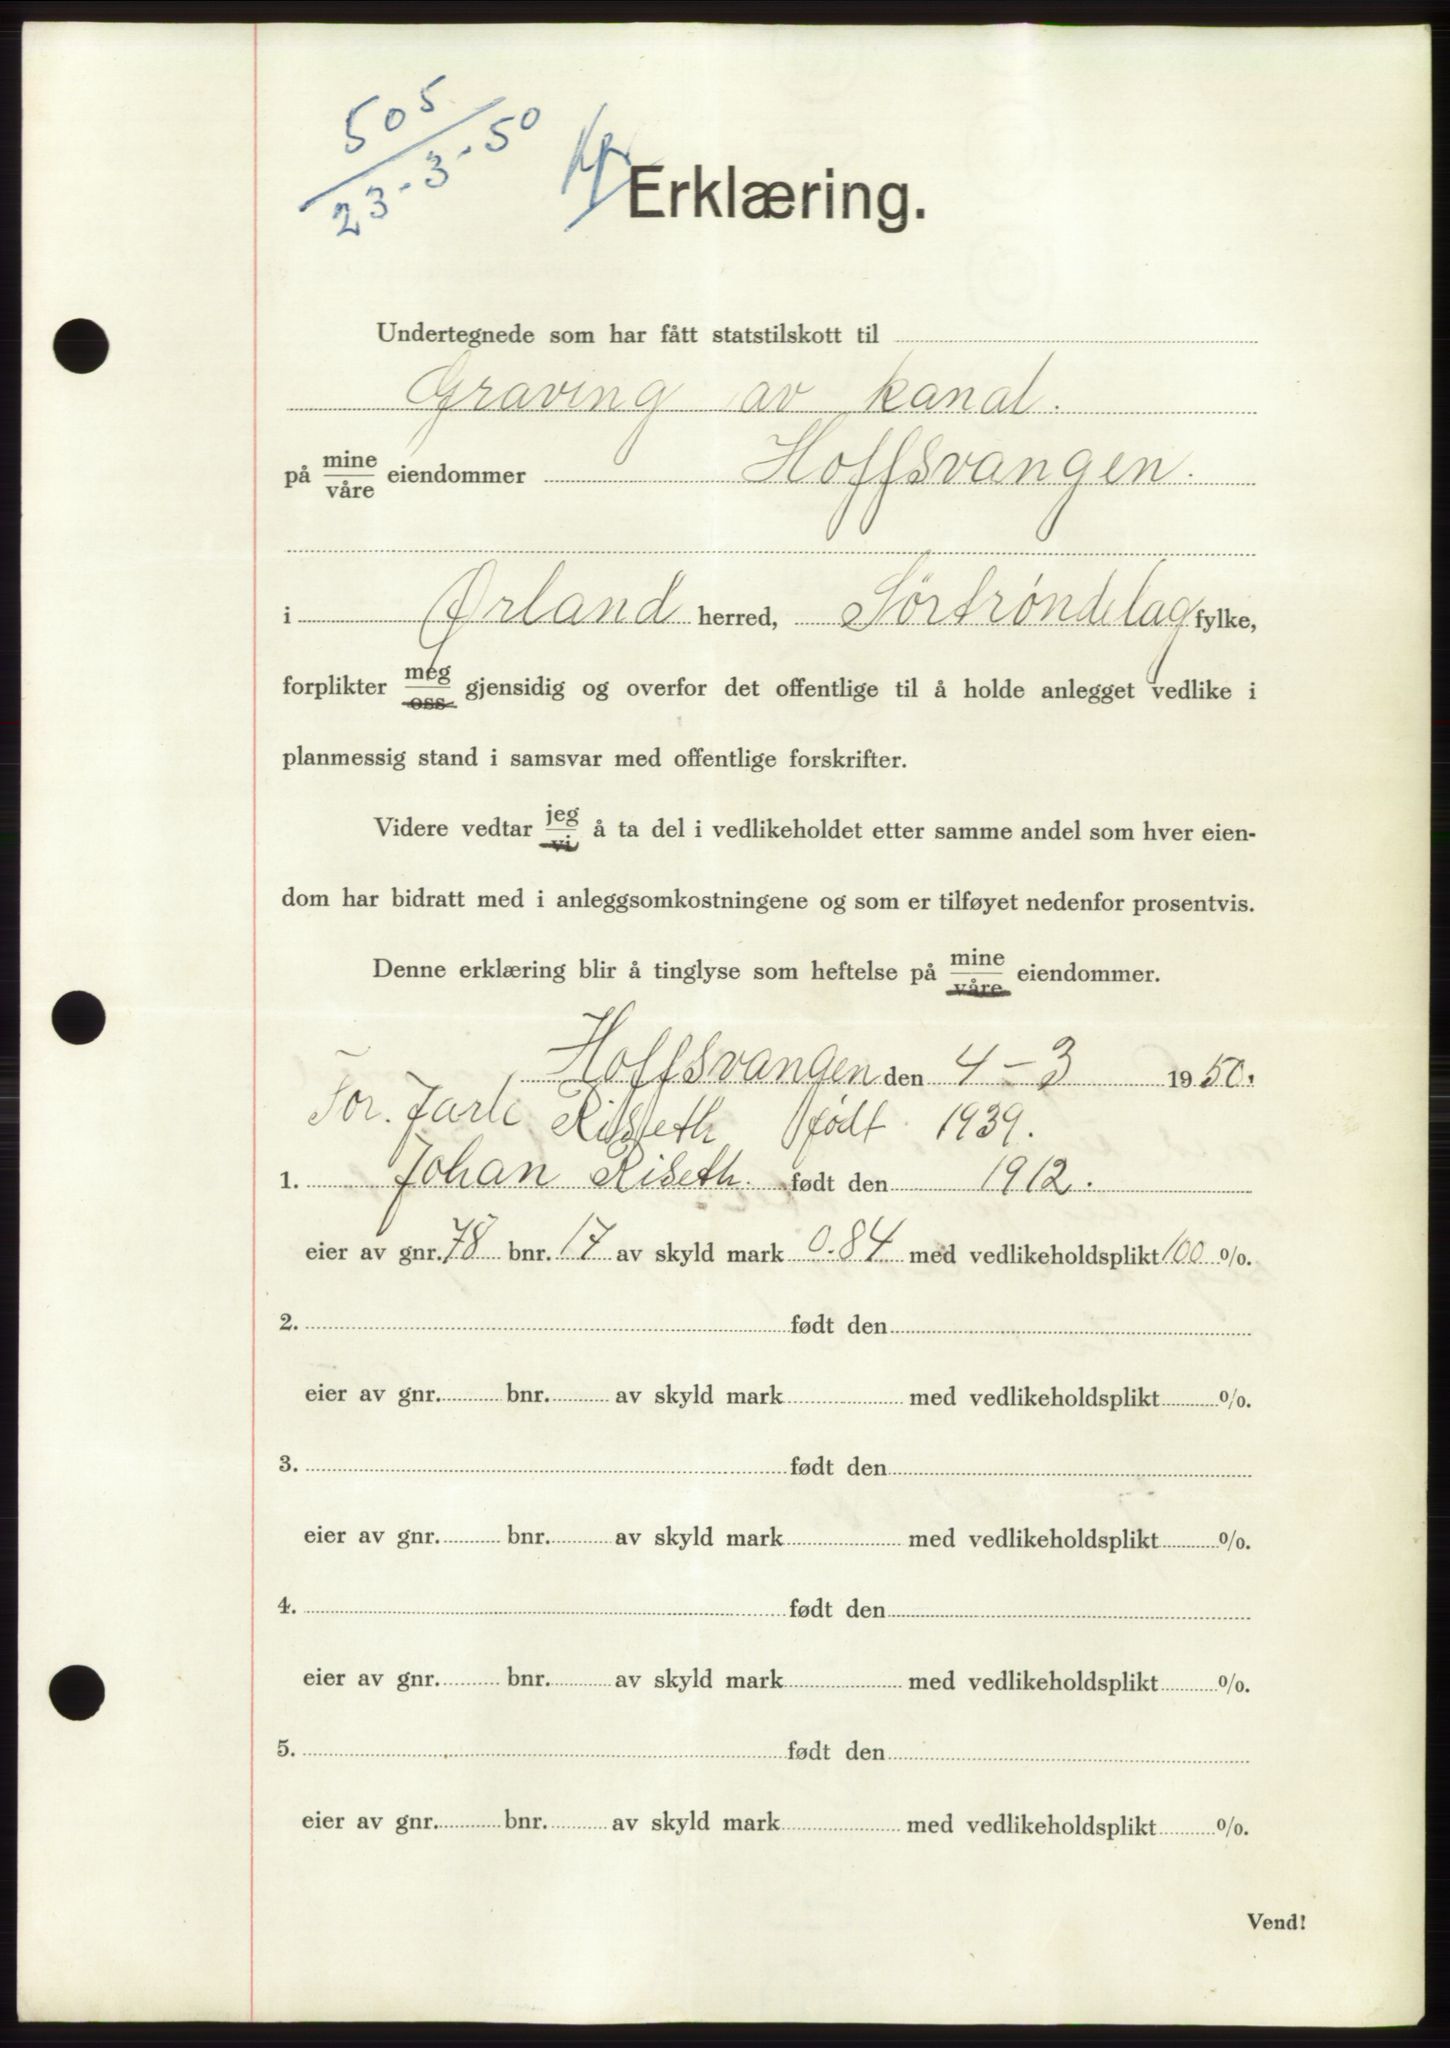 505
23-3-50
Erklæring.
Undertegnede som har fått statstilskott til
Graving av kanal.
på mine/våre eiendommer Hoffsvangen.
i Ørland herred, Sörtröndelag fylke,
forplikter meg/oss gjensidig og overfor det offentlige til å holde anlegget vedlike i
planmessig stand i samsvar med offentlige forskrifter.
Videre vedtar jeg/vi å ta del i vedlikeholdet etter samme andel som hver eien-
dom har bidratt med i anleggsomkostningene og som er tilføyet nedenfor prosentvis.
Denne erklæring blir å tinglyse som heftelse på mine/våre eiendommer.
Hoffsvangen den 4-3 1950.
Tor. Jarle Riseth født 1939.
1. Johan Riseth. født den 1912.
eier av gnr. 78 bnr. 17 av skyld mark 0.84 med vedlikeholdsplikt 100 %.
2. født den
eier av gnr. bnr. av skyld mark med vedlikeholdsplikt %.
3. født den
eier av gnr. bnr. av skyld mark med vedlikeholdsplikt %.
4. født den
eier av gnr. bnr. av skyld mark med vedlikeholdsplikt %.
5. født den
eier av gnr. bnr. av skyld mark med vedlikeholdsplikt %.
Vend!